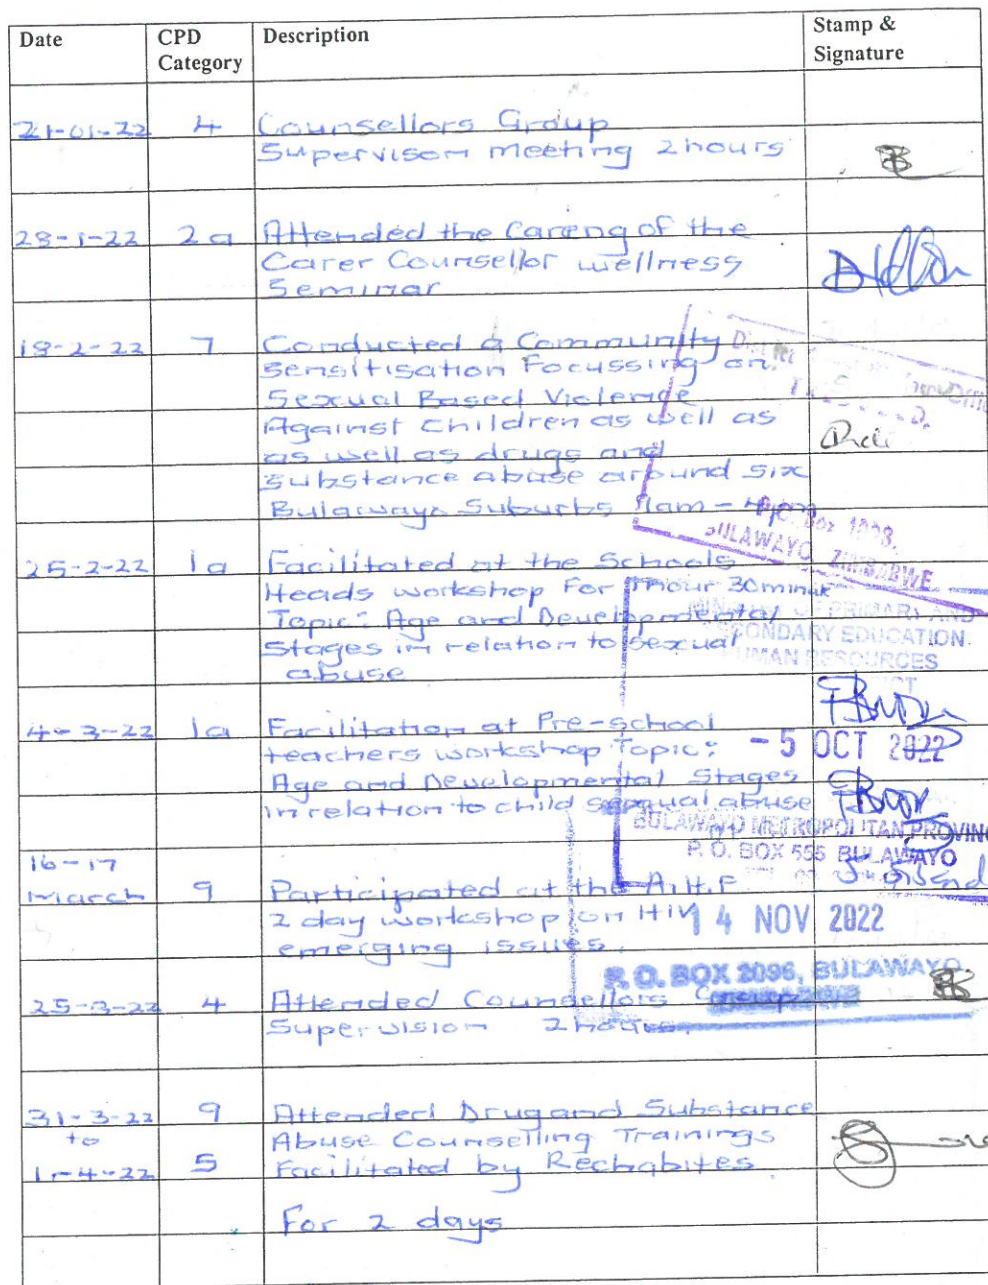 Date CPD Category Description Stamp & Signature
21-01-22 4 Counsellors Group
Supervison meeting 2hours
28-1-22 2a Attended the Careng of the
Carer Counsellor wellness
Seminar
18-2-22 7 Conducted a Community
Sensitisation Focussing on
Sexual Based Violence
Against Children as well as
as well as drugs and
substance abuse around six
Bulawayo Suburbs 9am - 4pm
P.O. Box 1098,
BULAWAYO, ZIMBABWE
25-2-22 1a Facilitated at the Schools
Heads workshop For 1hour 30minute
Topic: Age and Developmental
Stages in relation to sexual
abuse
MINISTRY OF PRIMARY AND
SECONDARY EDUCATION
HUMAN RESOURCES
4-3-22 1a Facilitation at Pre-school
teachers workshop Topic:
- 5 OCT 2022
Age and Developmental Stages
in relation to child sexual abuse
BULAWAYO METROPOLITAN PROVINC
P.O. BOX 555 BULAWAYO
16-17
March 9 Participated at the A.H.F
2 day workshop on HIV
14 NOV 2022
emerging issues.
P.O. BOX 2096, BULAWAYO
25-3-22 4 Attended Counsellors Group
Supervision 2hours.
31-3-22 9 Attended Drug and Substance
to Abuse Counselling Trainings
1-4-22 5 Facilitated by Rechabites
For 2 days